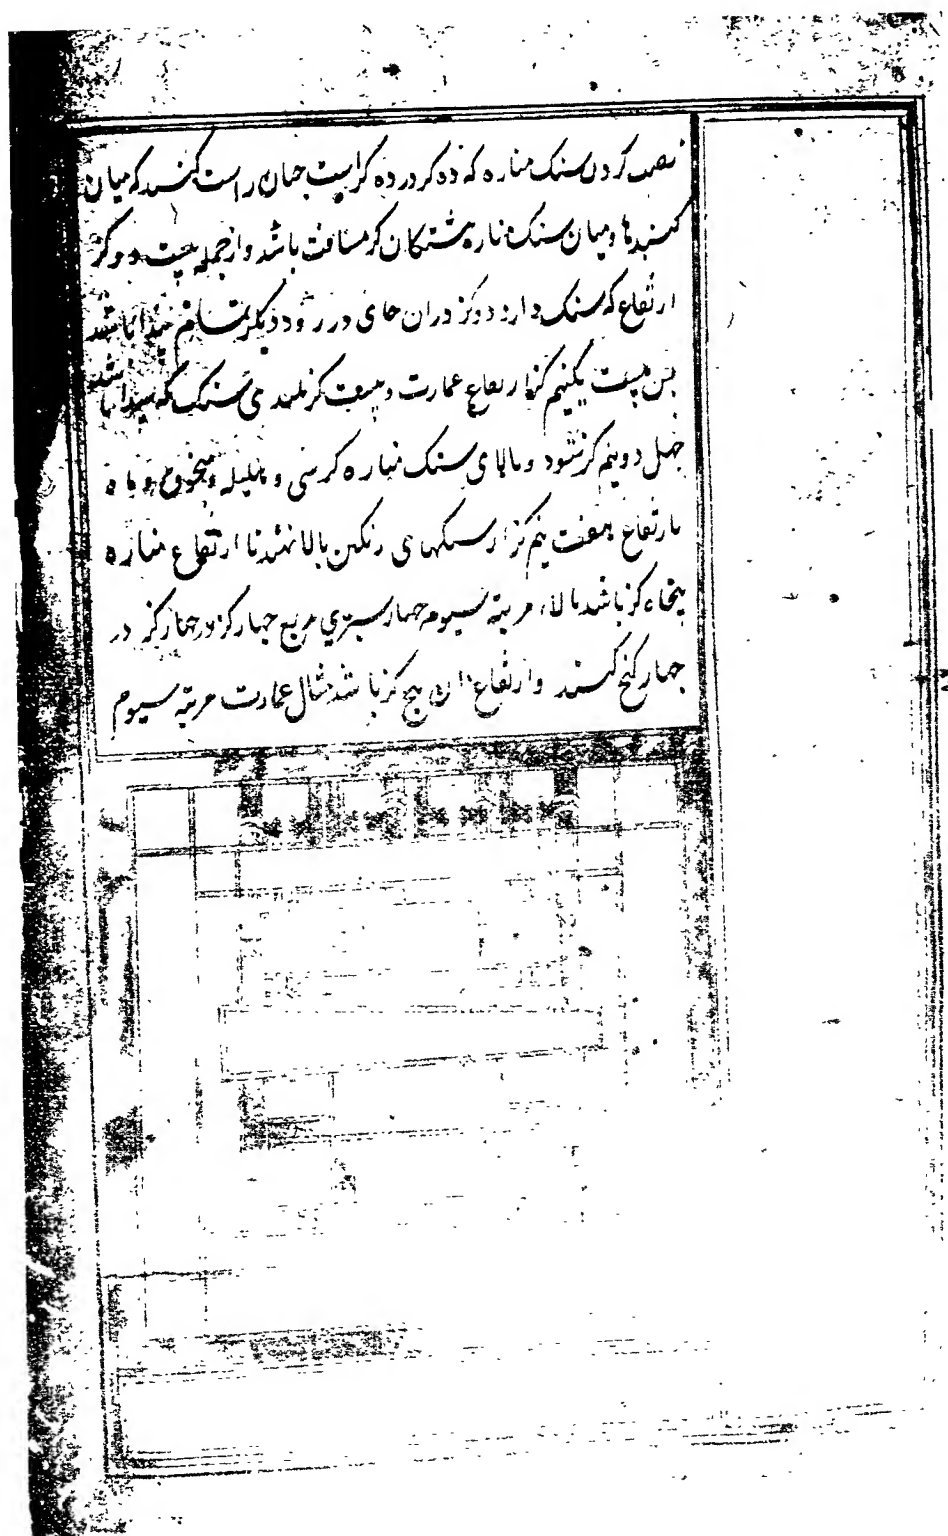 نصب کردن سنک مناره که ده کز در ده کز است جنان راست کنند که میان
کنبدها و میان سنک مناره هشتکان کز مسافت باشد و از جمله بیست و دو کز
ارتفاع که سنک دارد دو کز در ان جای در رود و دیکر تمام پیدا باشد
پس بیست یکنیم کز ارتفاع عمارت و بیست کز بلندی سنک که پیدا باشد
جهل دو ینم کز شود و بالای سنک مناره کرسی و هلیله و
بارتفاع هفت ینم کز از سنکهای رنکین بالا نهند تا ارتفاع مناره
پنجاه کز باشد بالاء مرتبه سیوم جهار مربع جهار کز در جهار کز در
جهار کنج کنند و ارتفاع ان پنج کز باشد مثال عمارت مرتبه سیوم